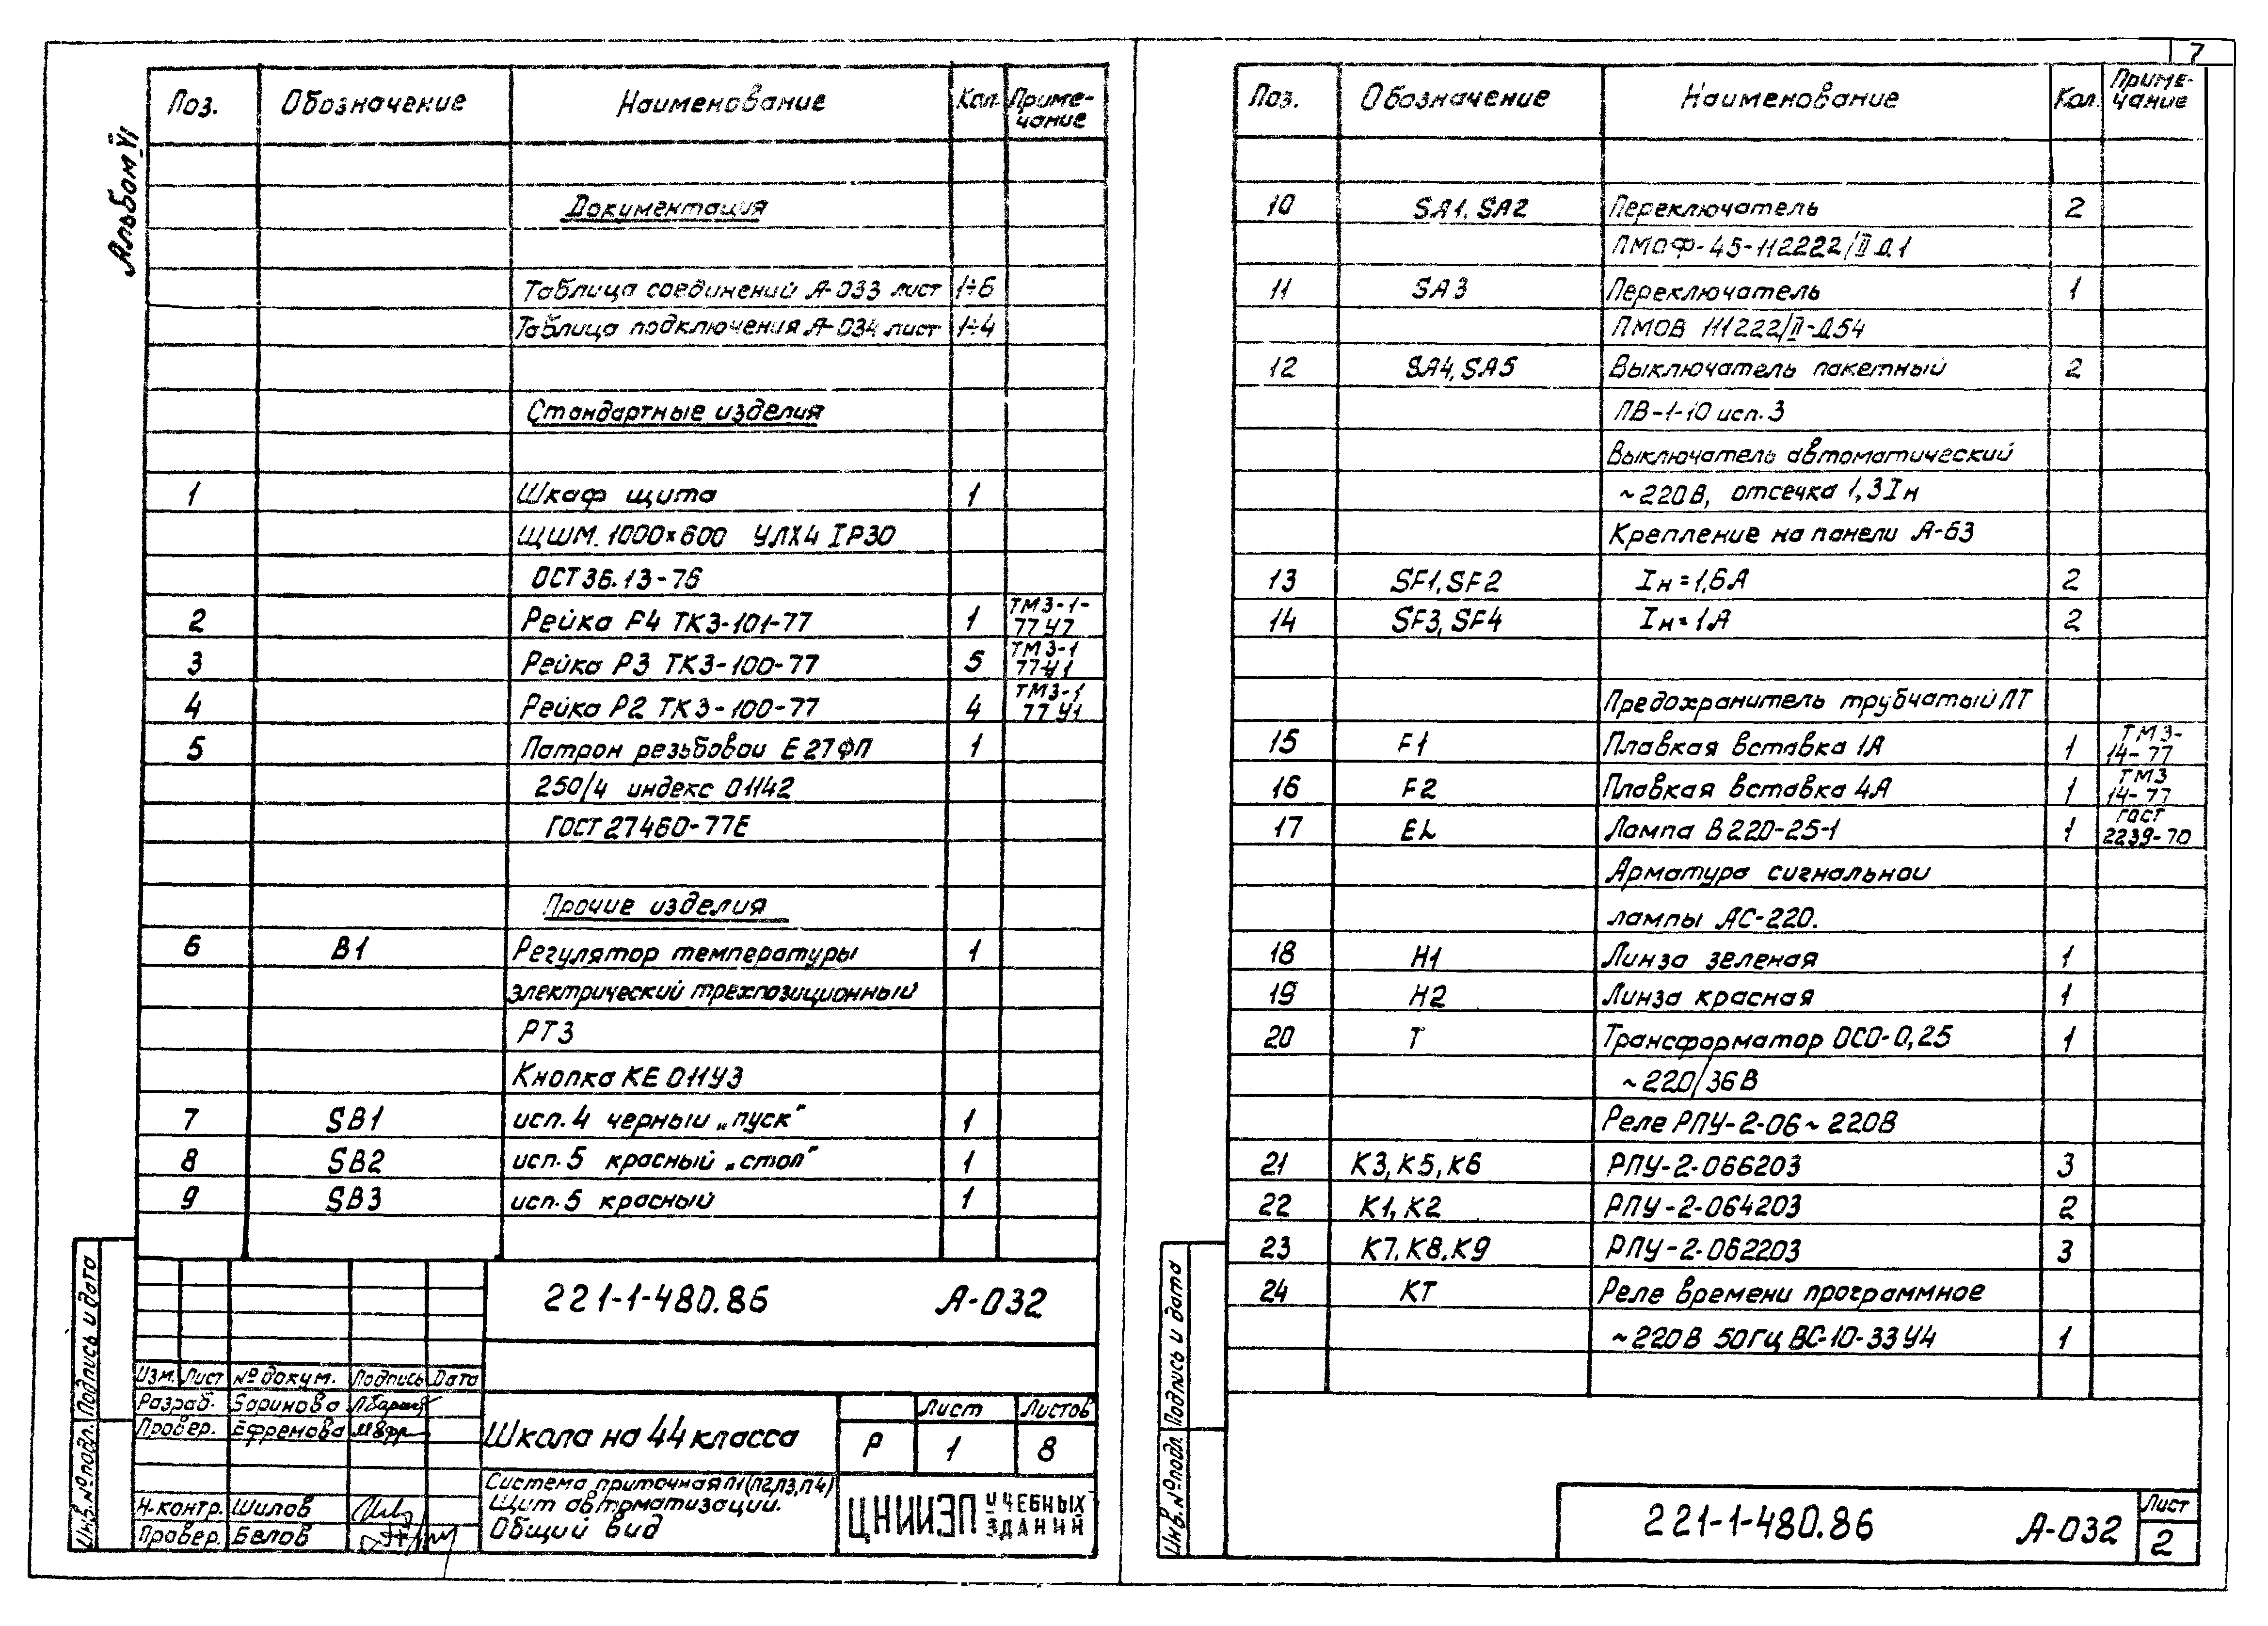 7
Альбом VI
Поз. Обозначение Наименование Кол. Приме-
чание
Документация
Таблица соединений А-033 лист 1÷6
Таблица подключения А-034 лист 1÷4
Стандартные изделия
1 Шкаф щита 1
ЩШМ. 1000×600 УЛХ4 IP30
ОСТ 36.13-76
2 Рейка Р4 ТК3-101-77 1 ТМ3-1-
77 У7
3 Рейка Р3 ТК3-100-77 5 ТМ3-1
77У1
4 Рейка Р2 ТК3-100-77 4 ТМ3-1
77 У1
5 Патрон резьбовой Е27ФП 1
250/4 индекс 01142
ГОСТ 27460-77Е
Прочие изделия
6 В1 Регулятор температуры 1
электрический трехпозиционный
РТ3
Кнопка КЕ 011У3
7 SB1 исп.4 черный „пуск" 1
8 SB2 исп.5 красный „стоп" 1
9 SB3 исп.5 красный 1
221-1-480.86 А-032
Изм. Лист № докум. Подпись Дата
Разраб. Баринова
Провер. Ефремова
Н.контр. Шилов
Провер. Белов
Школа на 44 класса
Система приточная П1(П2,П3,П4)
Щит автоматизации.
Общий вид
Лист Листов
Р 1 8
ЦНИИЭП УЧЕБНЫХ
ЗДАНИЙ
Инв.№подл. Подпись и дата
Поз. Обозначение Наименование Кол. Приме-
чание
10 SA1, SA2 Переключатель 2
ПМОФ-45-112222/II Д.1
11 SA3 Переключатель 1
ПМОВ 111222/II-Д54
12 SA4, SA5 Выключатель пакетный 2
ПВ-1-10 исп.3
Выключатель автоматический
~220В, отсечка 1,3Iн
Крепление на панели А-63
13 SF1, SF2 Iн=1,6А 2
14 SF3, SF4 Iн=1А 2
Предохранитель трубчатый ПТ
15 F1 Плавкая вставка 1А 1 ТМ3-
14-77
16 F2 Плавкая вставка 4А 1 ТМ3
14-77
17 EL Лампа В220-25-1 1 ГОСТ
2239-70
Арматура сигнальной
лампы АС-220.
18 Н1 Линза зеленая 1
19 Н2 Линза красная 1
20 Т Трансформатор ОСО-0,25 1
~220/36В
Реле РПУ-2-06~220В
21 К3, К5, К6 РПУ-2-066203 3
22 К1, К2 РПУ-2-064203 2
23 К7, К8, К9 РПУ-2-062203 3
24 КТ Реле времени программное
~220В 50Гц ВС-10-33У4 1
Инв.№подл. Подпись и дата
221-1-480.86 А-032
Лист
2